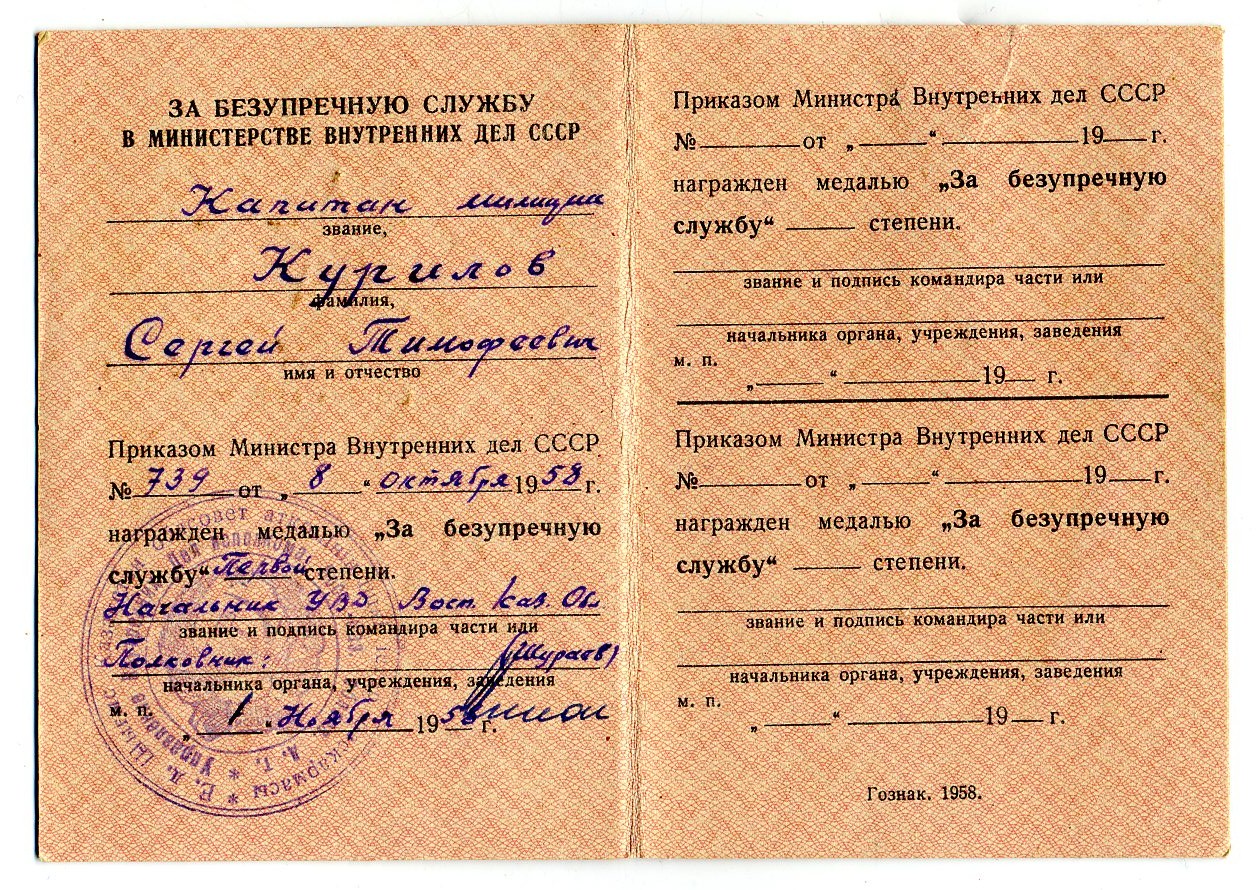 ЗА БЕЗУПРЕЧНУЮ СЛУЖБУ
В МИНИСТЕРСТВЕ ВНУТРЕННИХ ДЕЛ СССР
Капитан милиции
звание,
Курилов
фамилия,
Сергей Тимофеевич
имя и отчество
Приказом Министра Внутренних дел СССР
№ 739 от „ 8 “ октября 1958 г.
награжден медалью „За безупречную
службу“ Первой степени.
Начальник УВД Вост. Каз. Обл
звание и подпись командира части или
Полковник: (Шураев)
начальника органа, учреждения, заведения
м. п.
„ 1 “ Ноября 1958 г.
Приказом Министра Внутренних дел СССР
№ от „ “ 19 г.
награжден медалью „За безупречную
службу“ степени.
звание и подпись командира части или
начальника органа, учреждения, заведения
м. п.
„ “ 19 г.
Приказом Министра Внутренних дел СССР
№ от „ “ 19 г.
награжден медалью „За безупречную
службу“ степени.
звание и подпись командира части или
начальника органа, учреждения, заведения
м. п.
„ “ 19 г.
Гознак. 1958.